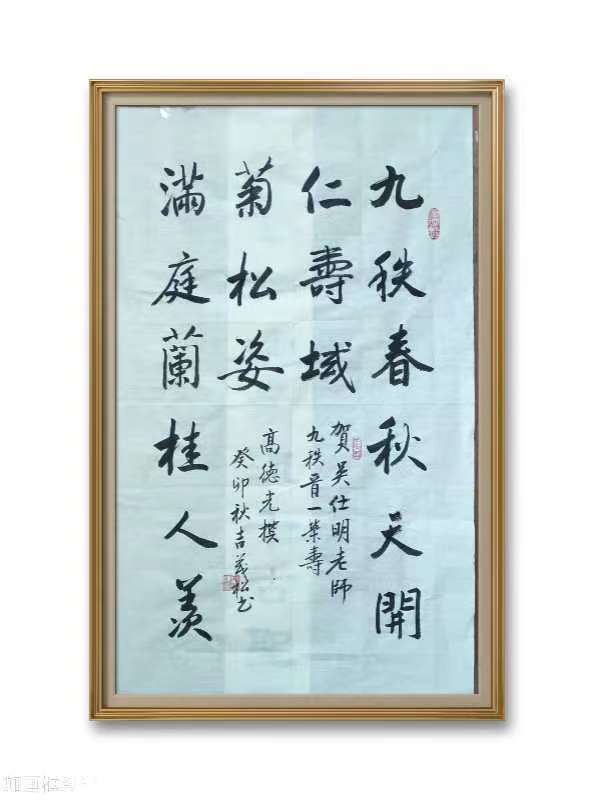 九秩春秋天開
仁壽域
菊松姿
滿庭蘭桂人羨
賀吴仕明老師
九秩晋一荣壽
高德光撰
癸卯秋吉茂松书